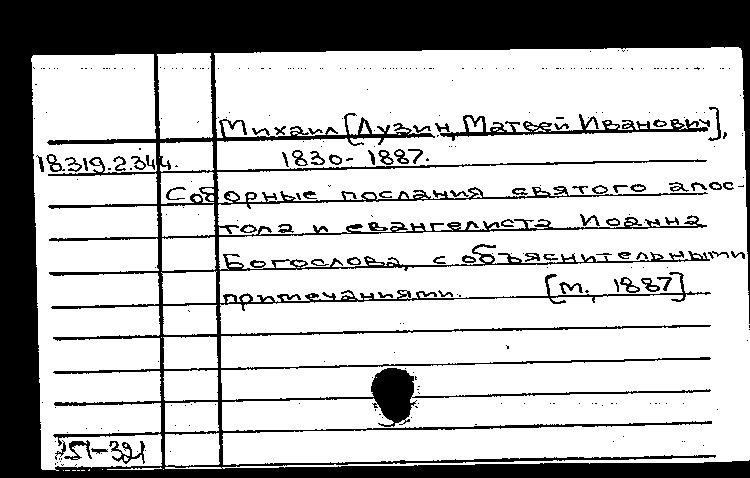 Михаил [Лузин, Матвей Иванович],
18.319.2.344. 1830-1887.
Соборные послания святого апос-
тола и евангелиста Иоанна
Богослова, с объяснительными
примечаниями. [М., 1887].
251-321